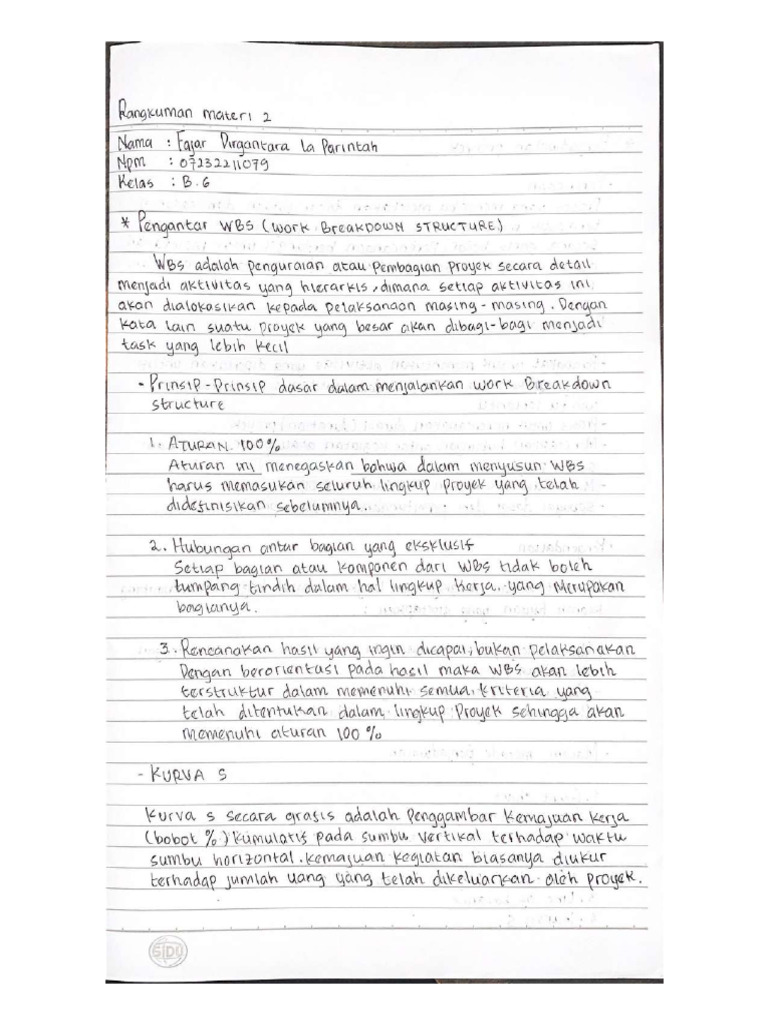 Rangkuman materi 2
Nama : Fajar Dirgantara La Parintah
Npm : 07232211079
Kelas : B.6
* Pengantar WBS (Work Breakdown STRUCTURE)
WBS adalah penguraian atau Pembagian Proyek secara detail
menjadi aktivitas yang hierarkis, dimana setiap aktivitas ini
akan dialokasikan kepada pelaksanaan masing-masing. Dengan
kata lain suatu proyek yang besar akan dibagi-bagi menjadi
task yang lebih kecil
- Prinsip-Prinsip dasar dalam menjalankan work Breakdown
structure
1. ATURAN 100%
Aturan ini menegaskan bahwa dalam menyusun WBS
harus memasukan seluruh lingkup Proyek yang telah
didefinisikan sebelumnya.
2. Hubungan antar bagian yang eksklusif
Setiap bagian atau komponen dari WBS tidak boleh
tumpang tindih dalam hal lingkup kerja yang Merupakan
bagianya.
3. Rencanakan hasil yang ingin dicapai, bukan pelaksanakan
Dengan berorientasi pada hasil maka WBS akan lebih
terstruktur dalam memenuhi semua kriteria yang
telah ditentukan dalam lingkup Proyek sehingga akan
memenuhi aturan 100%
- KURVA S
Kurva S secara grafis adalah Penggambar Kemajuan Kerja
(bobot %) Kumulatif pada sumbu vertikal terhadap waktu
sumbu horizontal. Kemajuan kegiatan biasanya diukur
terhadap jumlah uang yang telah dikeluarkan oleh proyek.
SIDU